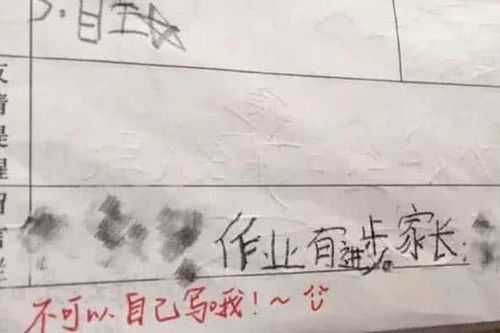 3.自主☆
友情提醒留言栏
作业有进步家长:
不可以自己写哦!~